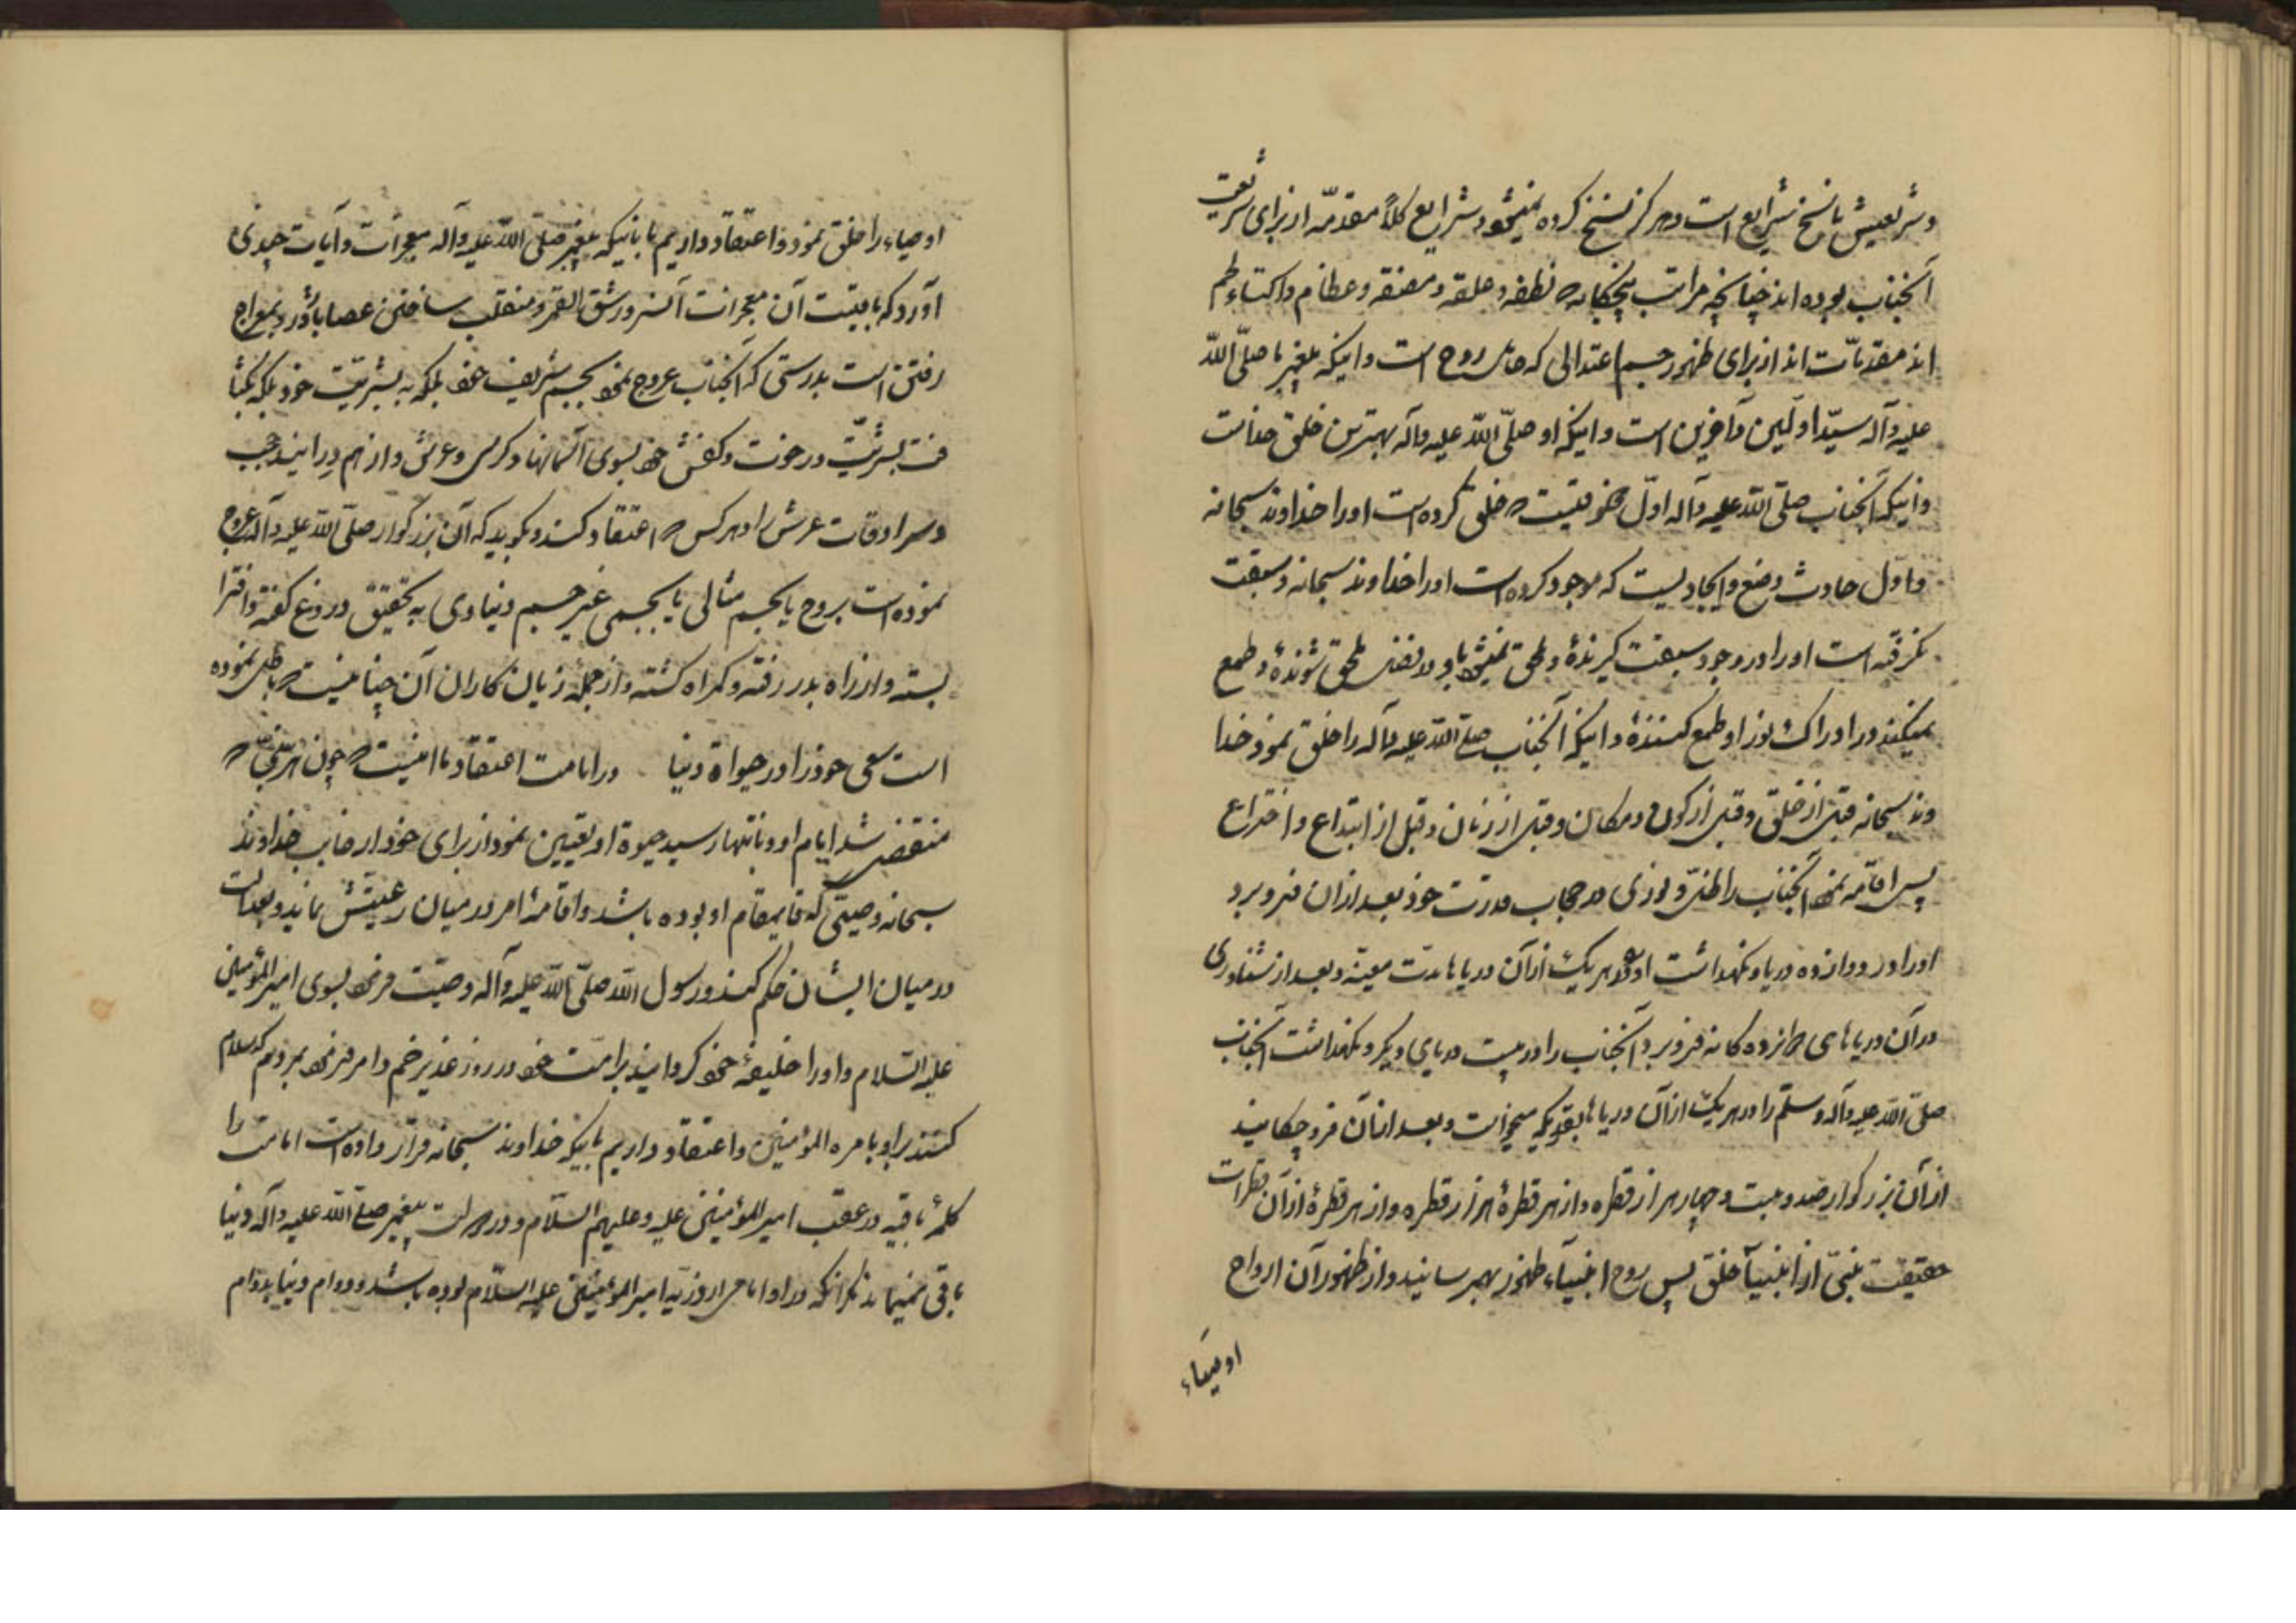 و شریعتش ناسخ شرایع است و هرگز نسخ کرده نمیشود شرایع کلاً مقدمه از برای شریعت
آنجناب بوده اند چنانچه مراتب پنجگانه که نطفه و علقه و مضغه و عظام و اکتساء لحم
اند مقدمات اند از برای ظهور جسم اعتدالی که حامل روح است و اینکه پیغمبر ما صلّی اللّه
علیه و آله سیّد اولین و آخرین است و اینکه او صلّی اللّه علیه و آله بهترین خلق خداست
و اینکه آنجناب صلّی اللّه علیه و آله اوّل مخلوقیست که خلق کرده است او را خداوند سبحانه
و اوّل حادث وضع و ایجادیست که موجود کرده است او را خداوند سبحانه و سبقت
نگرفته است او را در وجود سبقت گیرندهٔ و ملحق نمیشود باو در فضل ملحق شوندهٔ و طمع
نمیکند در ادراک نور او طمع کنندهٔ و اینکه آنجناب صلّی اللّه علیه و آله را خلق نمود خدا
وند سبحانه قبل از خلق و قبل از کون و مکان و قبل از زمان و قبل از ابتداع و اختراع
پس اقامه نمود آنجناب را ظلّی و نوری در حجاب قدرت خود بعد از آن فرو برد
او را در دوازده دریا و نگهداشت او را در هر یک از آن دریاها مدت معینه و بعد از شناوری
در آن دریاهای دوازده گانه فرو برد آنجناب را در بیست دریای دیگر و نگهداشت آنجناب
صلّی اللّه علیه و آله و سلّم را در هر یک از آن دریاها بقدریکه میخواست و بعد از آن فرو چکانید
از آن بزرگوار صد و بیست و چهار هزار قطره و از هر قطرهٔ هزار قطره و از هر قطرهٔ از آن قطرات
حقیقت نبیّ از انبیآ خلق پس روح انبیآء ظهور بهمرسانید و از ظهور آن ارواح
اوصیاء
اوصیاء را خلق نمود و اعتقاد داریم باینکه پیغمبر صلّی اللّه علیه و آله معجزات و آیات چندی
آورد که باقیست آن معجزات آنسرور شق القمر و منقلب ساختن عصا باژدر و بمعراج
رفتن است بدرستی که آنجناب عروج نمود بجسم شریف خود بلکه به بشریت خود بلکه بکثا
فت بشریّت و رخوت و کفش خود بسوی آسمانها و کرسی و عرش و از هم درانید حجب
و سرادقات عرش را و هر کس که اعتقاد کند و بگوید که آن بزرگوار صلّی اللّه علیه و آله عروج
نموده است بروح یا بجسم مثالی یا بجسمی غیر جسم دنیاوی به تحقیق دروغ گفته و افترا
بسته و از راه بدر رفته و گمراه گشته و از جمله زیان کاران آن چنانیست که باطل نموده
است سعی خود را در حیواة دنیا در امامت اعتقاد ما اینست که چون هر نبیّ که
منقضی شد ایام او و بانتها رسید حیوة او تعیین نمود از برای خود از جانب خداوند
سبحانه وصیّی که قایمقام او بوده باشد و اقامهٔ امر در میان رعیتش نماید و بعدالت
در میان ایشان حکم کند و رسول اللّه صلّی اللّه علیه و آله وصیّت فرمود بسوی امیرالمؤمنین
علیه السّلام و او را خلیفهٔ خود گردانید بر امّت خود در روز غدیر خم و امر فرمود بمردم که سلام
کنند بر او بامره المؤمنین و اعتقاد داریم باینکه خداوند سبحانه قرار داده است امامت را
کلمهٔ باقیه در عقب امیرالمؤمنین علیه و علیهم السّلام و در رسالت پیغمبر صلّی اللّه علیه و آله دنیا
باقی نمیماند مگر آنکه در او امامی از ذریه امیرالمؤمنین علیه السّلام بوده باشد و دوام دنیا بدوام